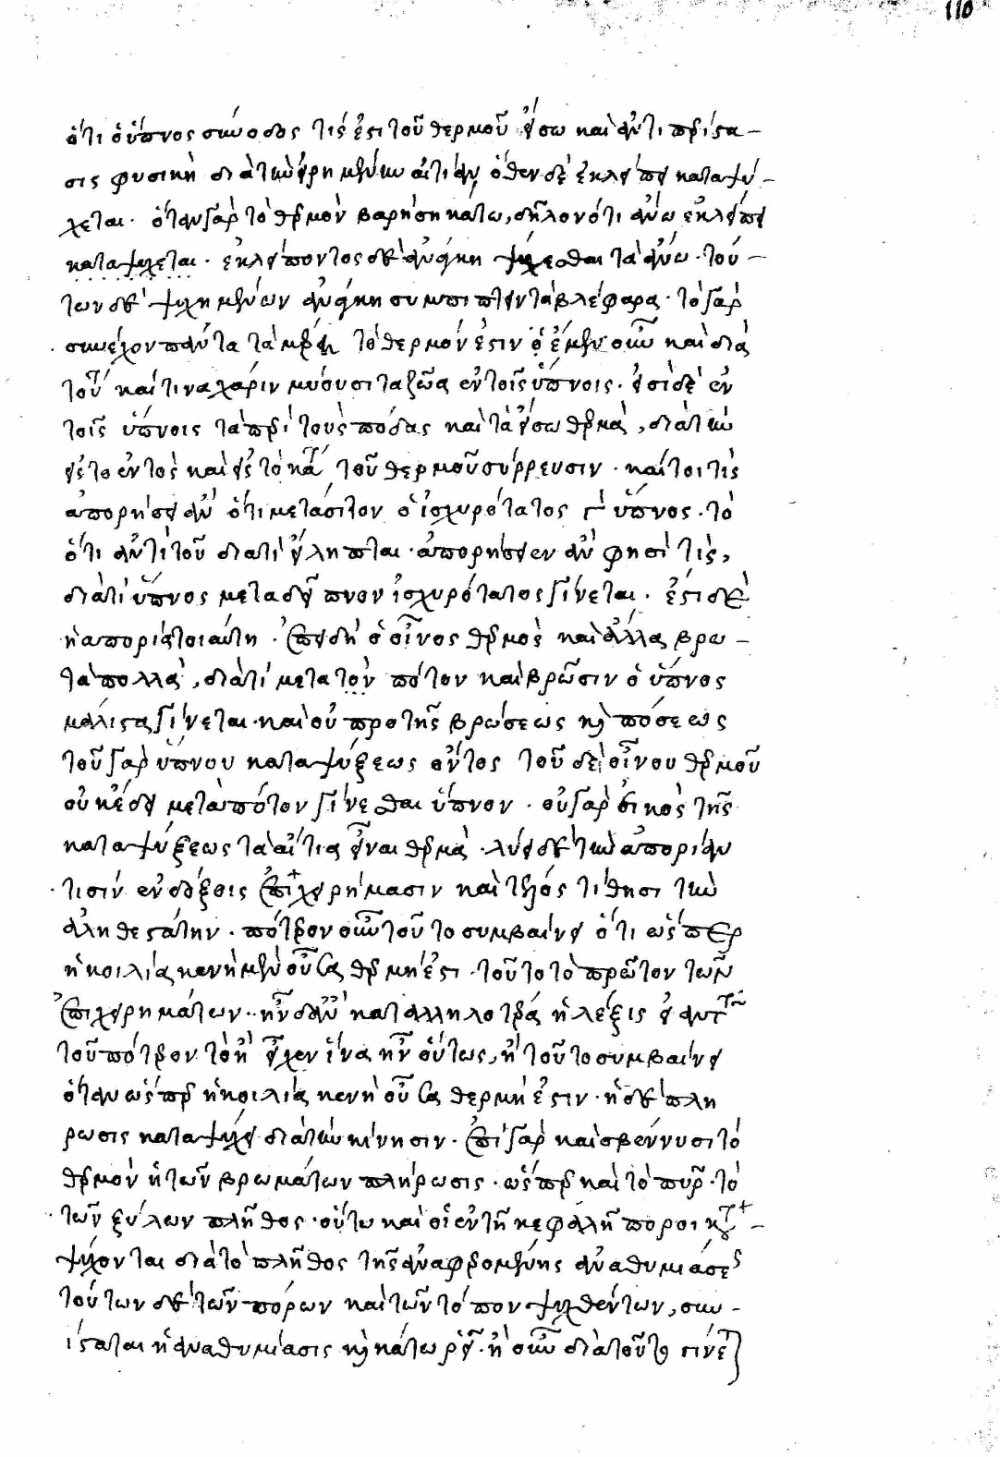 110
ὅτι ὁ ὕπνος σύνοδός τίς ἐστι τοῦ θερμοῦ εἴσω καὶ ἀντιπερίστα-
σις φυσικὴ διὰ τὴν εἰρημένην αἰτίαν ὅθεν δὲ ἐκλείπει καταψύ-
χεται. ὅταν γὰρ τὸ θερμὸν βαρήση κάτω, δῆλον ὅτι ἄνω ἐκλείπει
καταψύχεται. ἐκλείποντος δὲ ἀνάγκη ψύχεσθαι τὰ ἄνω. τού-
των δὲ ψυχημένων ἀνάγκη συμπίπτειν τὰ βλέφαρα. τὸ γὰρ
συνέχον πάντα τὰ μέρη τὸ θερμόν ἐστιν ὃ ἐμὲν οὖν καὶ διὰ
τοῦ καὶ τίνα χάριν μύουσι τὰ ζῶα ἐν τοῖς ὕπνοις. εἰσὶ δὲ ἐν
τοῖς ὕπνοις τὰ περὶ τοὺς πόδας καὶ τὰ εἴσω θερμὰ, διὰ τὴν
εἰς τὸ ἐντὸς καὶ εἰς τὸ κάτω τοῦ θερμοῦ σύρρευσιν. καίτοι τις
ἀπορήσει ἂν ὅτι μετὰ σίτον ὁ ἰσχυρότατος γί ὕπνος. τὸ
ὅτι ἀντὶ τοῦ διατί εἴληπται. ἀπορήσειεν ἂν φησί τις,
διατί ὕπνος μετὰ δεῖπνον ἰσχυρότατος γίνεται. ἔστι δὲ
ἡ ἀπορία τοιαύτη. ἐπειδὴ ὁ οἶνος θερμὸς καὶ ἄλλα βρω-
τὰ πολλὰ, διατί μετὰ τὸν πότον καὶ βρῶσιν ὁ ὕπνος
μάλιστα γίνεται. καὶ οὐ πρὸ τῆς βρώσεως καὶ πόσεως
τοῦ γὰρ ὕπνου καταψύξεως ὄντος τοῦ δὲ οἴνου θερμοῦ
οὐκ ἔδει μετὰ πότον γίνεσθαι ὕπνον. οὐ γὰρ εἰκὸς τῆς
καταψύξεως τὰ αἴτια εἶναι θερμὰ. λύει δὲ τὴν ἀπορίαν
τισὶν ἐνδόξοις ἐπιχειρήμασιν καὶ τέλος τίθησι τὴν
ἀληθεστάτην. πότερον οὖν τοῦτο συμβαίνει ὅτι ὥσπερ
ἡ κοιλία κενὴ μὲν οὖσα θερμή ἐστι. τοῦτο τὸ πρῶτον τῶν
ἐπιχειρημάτων. ἦν δ' ἂν καταλληλοτέρα ἡ λέξις εἰ ἀντὶ
τοῦ πότερον τὸ ἢ εἶχεν ἵνα ἦν οὕτως, ἢ τοῦτο συμβαίνει
ὅταν ὥσπερ ἡ κοιλία κενὴ οὖσα θερμή ἐστιν. ἡ δὲ πλή
ρωσις καταψύχει διὰ τὴν κίνησιν. ἐπεὶ γὰρ καὶ σβέννυσι τὸ
θερμὸν ἡ τῶν βρωμάτων πλήρωσις. ὥσπερ καὶ τὸ πῦρ. τὸ
τῶν ξύλων πλῆθος. οὕτω καὶ οἱ ἐν τῆ κεφαλῆ πόροι κατα-
ψύχονται διὰ τὸ πλῆθος τῆς ἀναφερομένης ἀναθυμιάσεως
τούτων δὲ τῶν πόρων καὶ τῶν τόπον ψυχθέντων, συν-
ίσταται ἡ ἀναθυμίασις καὶ κάτω ῥεῖ. ἢ οὖν διὰ τοῦτο γίνεται